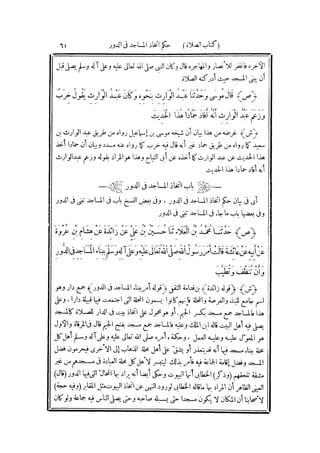 (كتاب الصلاة) حكم اتخاذ المساجد فى الدور ٦١
الآخره فاغفر للأنصار والمهاجره قال وكان النبى صلى الله تعالى عليه وعلى آله وسلم يصلى قبل
أن يبنى المسجد حيث أدركته الصلاة
﴿ص﴾ قَالَ مُوسَى وَحَدَّثَنَا عَبْدُ الْوَارِثِ بِنَحْوِهِ وَكَانَ عَبْدُ الْوَارِثِ يَقُولُ خَرِبٌ
وَزَعَمَ عَبْدُ الْوَارِثِ أَنَّهُ أَفَادَ حَمَّادًا هٰذَا الْحَدِيثَ
﴿ش﴾ غرضه من هذا بيان أن شيخه موسى بن إسماعيل رواه من طريق عبد الوارث بن
سعيد كما رواه من طريق حماد غير أنه قال فيه خرب كما رواه عنه مسدد وبيان أن حمادا أخذ
هذا الحديث عن عبد الوارث كما أخذه عن أبى التياح وهذا هو المراد بقوله وزعم عبد الوارث
أنه أفاد حمادا هذا الحديث
باب اتخاذ المساجد فى الدور
أى فى بيان حكم اتخاذ المساجد فى الدور . وفى بعض النسخ باب فى المساجد تبنى فى الدور
وفى بعضها باب ما جاء فى المساجد تبنى فى الدور
﴿ص﴾ حَدَّثَنَا مُحَمَّدُ بْنُ الْعَلَاءِ ثَنَا حُسَيْنُ بْنُ عَلِىٍّ عَنْ زَائِدَةَ عَنْ هِشَامِ بْنِ عُرْوَةَ
عَنْ أَبِيهِ عَنْ عَائِشَةَ قَالَتْ أَمَرَ رَسُولُ اللهِ صَلَّى اللهُ تَعَالَى عَلَيْهِ وَعَلَى آلِهِ وَسَلَّمَ بِبِنَاءِ الْمَسَاجِدِ فِى الدُّورِ
وَأَنْ تُنَظَّفَ وَتُطَيَّبَ
﴿ش﴾ ﴿قوله زائدة﴾ بن قدامة الثقفى ﴿قوله أمر ببناء المساجد فى الدور﴾ جمع دار وهو
اسم جامع للبناء والعرصة والمحلة فإنهم كانوا يسمون المحلة التى اجتمعت فيها قبيلة دارا . وعلى
هذا فالمساجد جمع مسجد بكسر الجيم . أو هو محمول على اتخاذ بيت فى الدار للصلاة كالمسجد
يصلى فيه أهل البيت قاله ابن الملك وعليه فالمساجد جمع مسجد بفتح الجيم قال فى المرقاة والأول
هو المعول عليه وعليه العمل . وحكمة أمره صلى الله تعالى عليه وعلى آله وسلم أهل كل
محلة ببناء مسجد فيها أنه قد يتعذر أو يشق على أهل محلة الذهاب إلى الأخرى فيحرمون فضل
المسجد وفضل إقامة الجماعة فيه فأمر بذلك ليتيسر لأهل كل محلة العبادة فى مسجدهم من غير
مشقة تلحقهم (وذكر) الخطابى أنها البيوت وحكى أيضا أنه يراد بها المحال التى فيها الدور (قال)
العينى الظاهر أن المراد بها ما قاله الخطابى لورود النهى عن اتخاذ البيوت مثل المقابر (وفيه حجة)
لأصحابنا أن المكان لا يكون مسجدا حتى يسبله صاحبه وحتى يصلى الناس فيه جماعة ولو كان